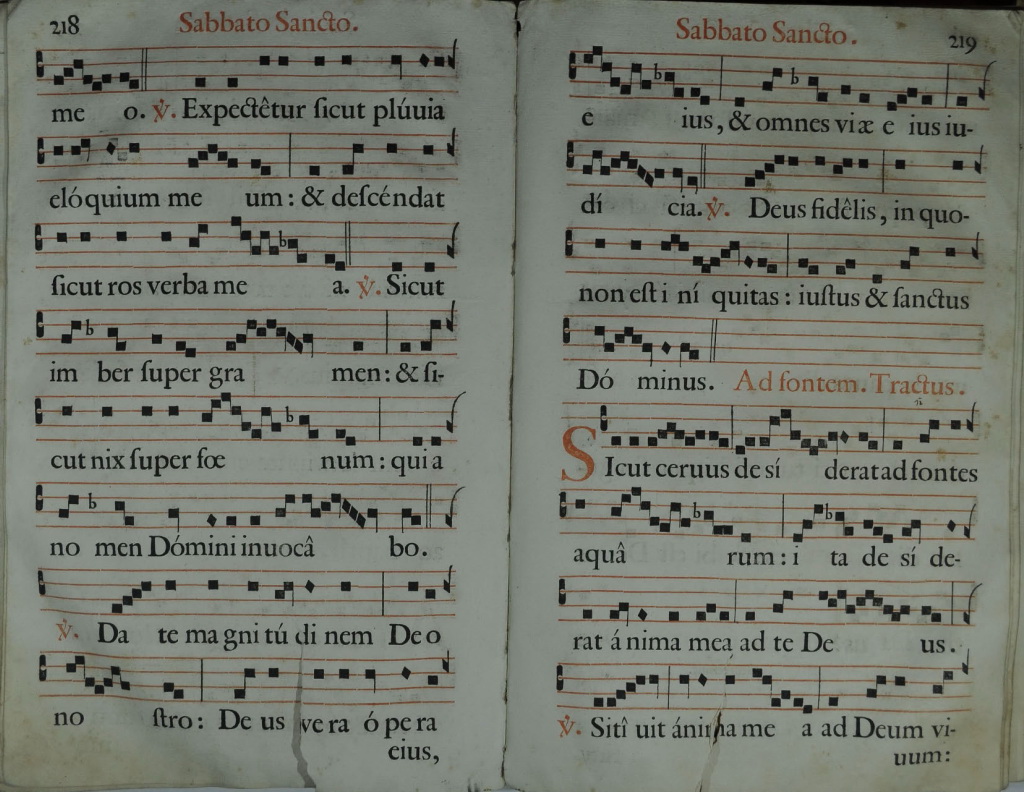 218
Sabbato Sancto.
me o. ℣. Expectêtur ſicut plúuia
elóquium me um: & deſcéndat
ſicut ros verba me a. ℣. Sicut
im ber ſuper gra men: & ſi-
cut nix ſuper fœ num: qui a
no men Dómini inuocâ bo.
℣. Da te ma gni tú di nem De o
no ſtro: De us ve ra ó pe ra
eius,
Sabbato Sancto.
219
e ius, & omnes viæ e ius iu-
dí cia. ℣. Deus fidêlis, in quo-
non eſt i ní quitas: iuſtus & ſanctus
Dó minus. Ad fontem. Tractus.
SIcut ceruus de sí derat ad fontes
aquâ rum: i ta de sí de-
rat á nima mea ad te De us.
℣. Sitî uit ánima me a ad Deum vi-
uum: